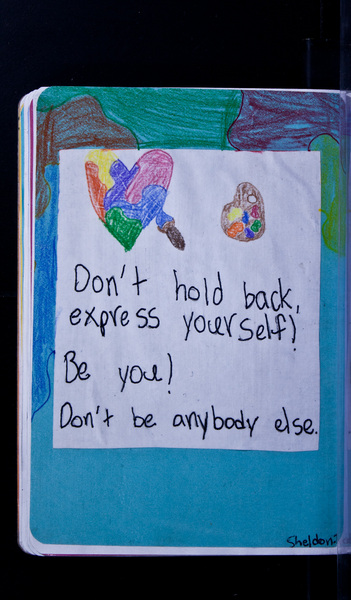 Don't hold back,
express yourself!
Be you!
Don't be anybody else.
Sheldon